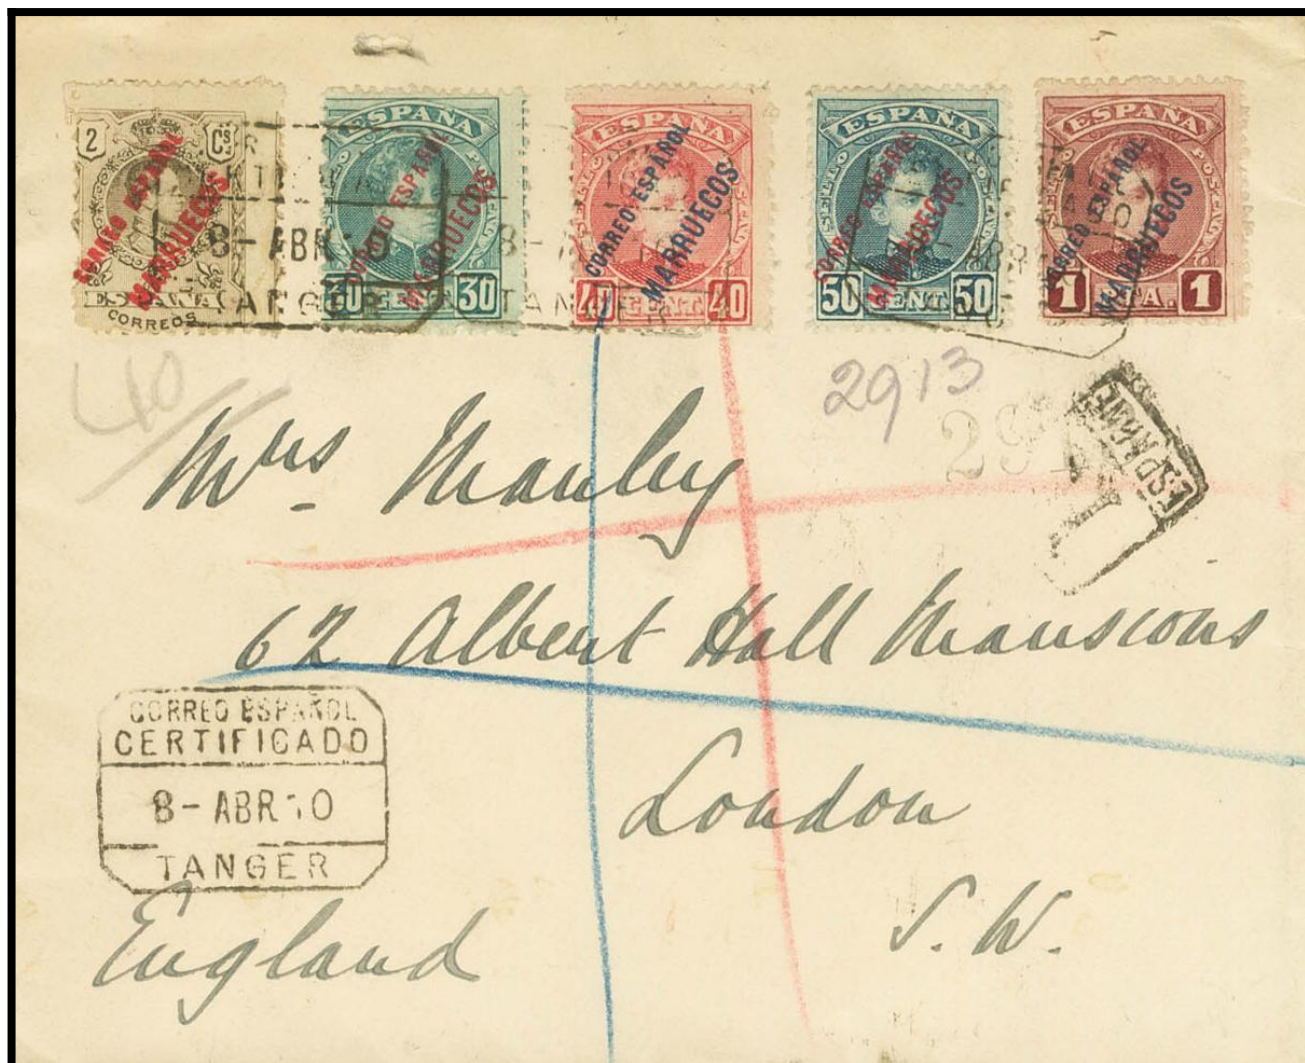 2 Cs
CORREO ESPAÑOL
MARRUECOS
ESPAÑA
CORREOS
ESPAÑA
CORREO ESPAÑOL
MARRUECOS
30 CENT. 30
ESPAÑA
CORREO ESPAÑOL
MARRUECOS
40 CENT. 40
ESPAÑA
CORREO ESPAÑOL
MARRUECOS
50 CENT. 50
ESPAÑA
CORREO ESPAÑOL
MARRUECOS
1 PTA. 1
8-ABR
TANGER
TANGER
40
2913
Mrs Manley
62 Albert Hall Mansions
London
S.W.
England
CORREO ESPAÑOL
CERTIFICADO
8-ABR10
TANGER